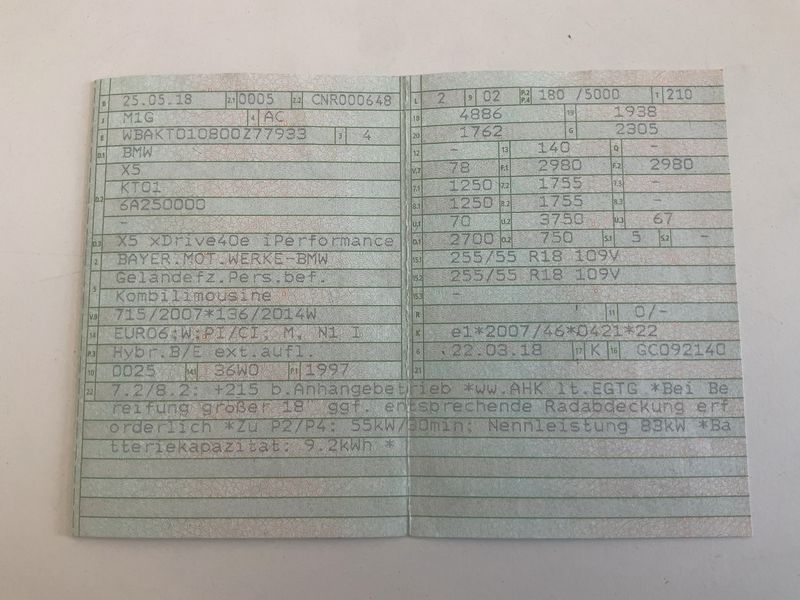 B 25.05.18 2.1 0005 2.2 CNR000648
J M1G 4 AC
E WBAKT010800Z77933 3 4
D.1 BMW
X5
D.2 KT01
6A250000
-
D.3 X5 xDrive40e iPerformance
2 BAYER.MOT.WERKE-BMW
5 Geländefz.Pers.bef.
Kombilimousine
V.9 715/2007*136/2014W
14 EURO6;W;PI/CI; M, N1 I
P.3 Hybr.B/E ext.aufl.
10 0025 14.1 36W0 P.1 1997
L 2 9 02 P.2 P.4 180 /5000 T 210
18 4886 19 1938
20 1762 G 2305
12 - 13 140 Q -
V.7 78 F.1 2980 F.2 2980
7.1 1250 7.2 1755 7.3 -
8.1 1250 8.2 1755 8.3 -
U.1 70 U.2 3750 U.3 67
O.1 2700 O.2 750 S.1 5 S.2 -
15.1 255/55 R18 109V
15.2 255/55 R18 109V
15.3 -
R 11 0/-
K e1*2007/46*0421*22
6 22.03.18 17 K 16 GC092140
21
22 7.2/8.2: +215 b.Anhängebetrieb *ww.AHK lt.EGTG *Bei Be
reifung größer 18" ggf. entsprechende Radabdeckung erf
orderlich *Zu P2/P4: 55kW/30min; Nennleistung 83kW *Ba
tteriekapazität: 9.2kWh *